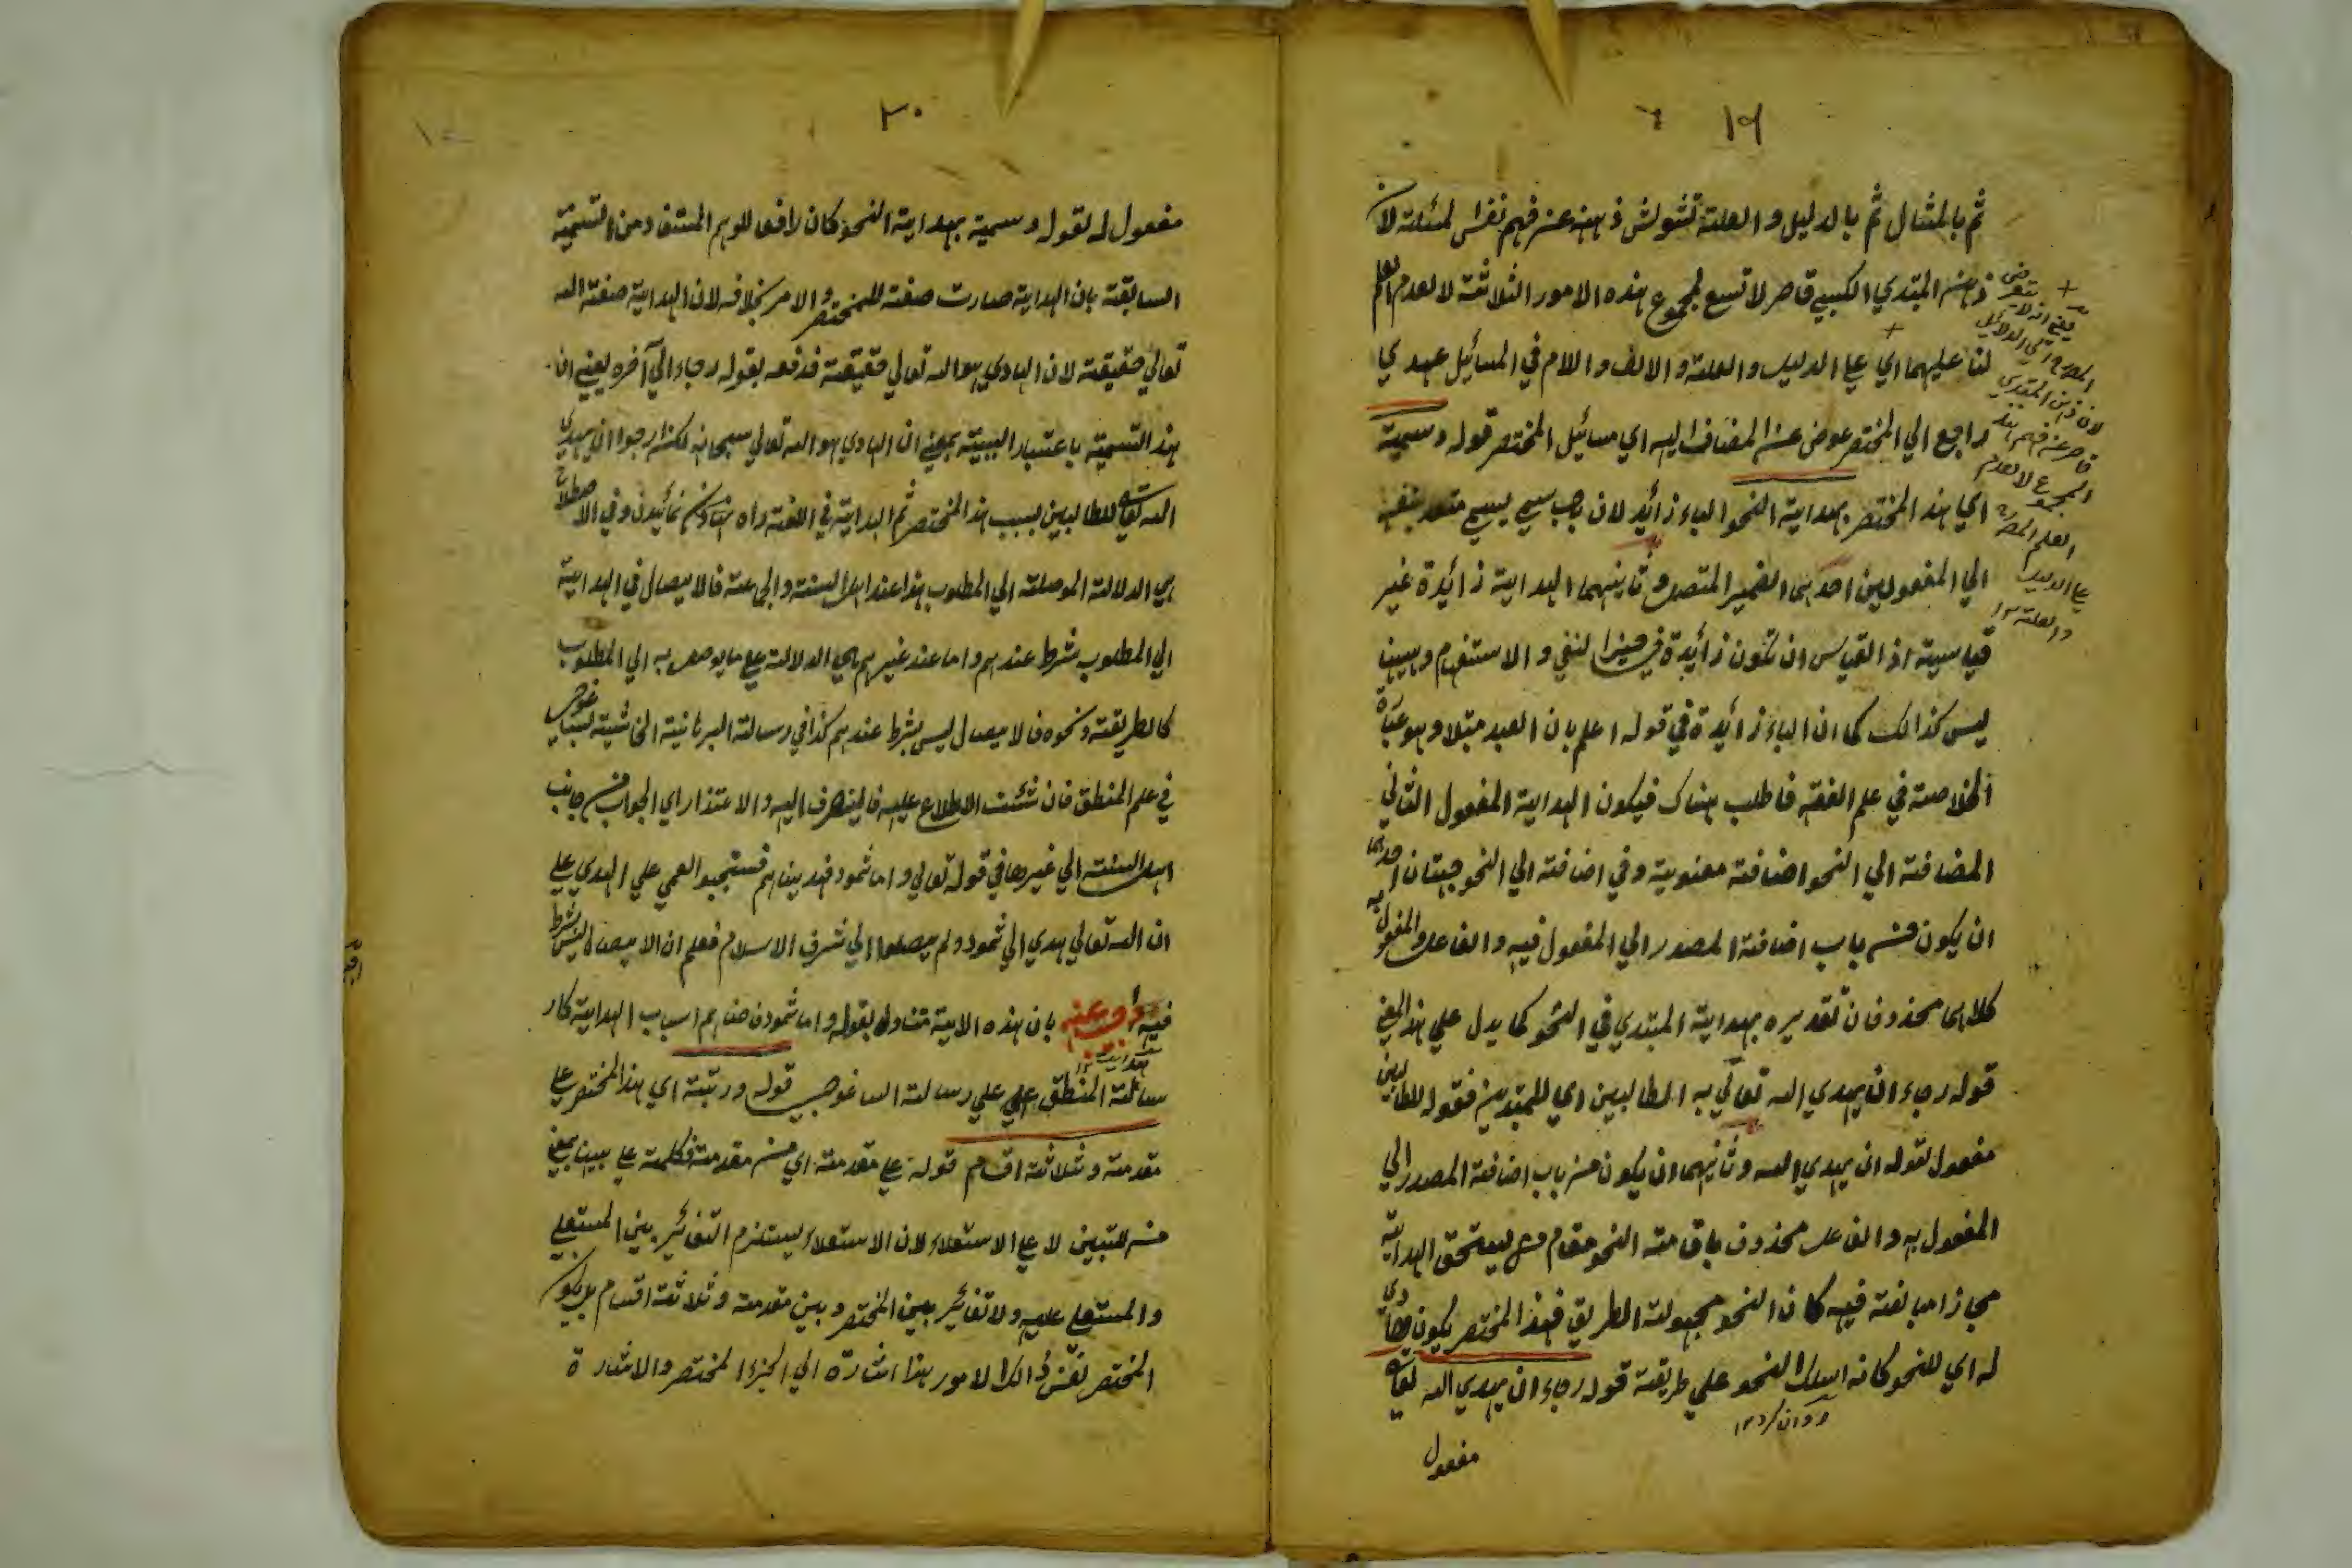 ١٩
ثم بالمثال ثم بالدليل والعلة تشوش ذهنه عن فهم نفس لمسئلة لان
ذهن المبتدي الكسبي قاصر لا تسع لمجموع هذه الامور الثلاثة لا لعدم العلم
لنا عليهما اي علي الدليل والعلة والالف واللام في المسائيل عهدي
راجع الي المختصر عوض عن المضاف اليه اي مسائيل المختصر قوله وسميته
اي هذا المختصر بهداية النحو الباء زائد لان سمي يسمي متعد بنفسه
الي المفعولين احدهما الضمير المتصل وثانيهما الهداية زائدة غير
قياسية اذ القياس ان تكون زائدة في حيز النفي والاستفهام وههنا
ليس كذالك كما ان الباء زائدة في قوله اعلم بان العبد مبتلا وهو عبارة
الخلاصة في علم الفقه فاطلب هناك فيكون الهداية المفعول الثاني
المضافة الي النحو اضافة معنوية وفي اضافة الي النحو جهتان احدهما
ان يكون من باب اضافة المصدر الي المفعول فيه والفاعل والمفعول به
كلاهما محذوفان تقديره بهداية المبتدي في النحو كما يدل علي هذا المعني
قوله رجاء ان يهدي الله تعالي به الطالبين اي للمبتدين فقوله للطالبين
مفعول لقوله ان يهدي الله وثانيهما ان يكون من باب اضافة المصدر الي
المفعول به والفاعل محذوف باقامة النحو مقام من يستحق الهداية
مجازا مبالغة فيه كان النحو مجهولة الطريق فهذا المختصر يكون هادي
له اي للنحو كانه اسلك النحو علي طريقة قوله رجاء ان يهدي الله تعالي
روان كرد ١٢
مفعول
يعني انه لا يتعرض
المص الي الدلائل
لان ذهن المبتدي
قاصر عن فهم هذه
المجموع لا لعدم
العلم المص
علي الدليل
والعلة ١٢
٢٠
مفعول له لقوله وسميته بهداية النحو كان دافعا للوهم المستفاد من التسمية
السابقة بان الهداية صارت صفة للمختصر والامر بخلافه لان الهداية صفة الله
تعالي حقيقة لان الهادي هو الله تعالي حقيقة فدفعه بقوله رجاء الي آخره يعني ان
هذا التسمية باعتبار السببية بمعني ان الهادي هو الله تعالي سبحانه لكنه ارجوا ان يهدي
الله تعالي للطالبين بسبب هذا المختصر ثم الهداية في اللغة راه نمائيدن وفي الاصطلاح
هي الدلالة الموصلة الي المطلوب هذا عند اهل السنة والجماعة فالايصال في الهداية
الي المطلوب شرط عندهم واما عند غيرهم هي الدلالة علي ما يوصل به الي المطلوب
كالطريقة ونحوه فالايصال ليس بشرط عندهم كذا في رسالة البرهانية الحاشية
في علم المنطق فان شئت الاطلاع عليه فالينصرف اليه والاعتذار اي الجواب من جانب
اهل السنة الي غيرها في قوله تعالي واما ثمود فهديناهم فستحبو العمي علي الهدي علي
ان الله تعالي هدي الي ثمود ولم يصلوا الي شرف الاسلام فعلم ان الايصال ليس شرط
فيه أجيب عنه بان هذه الاية متناول بقوله واما ثمود اسباب الهداية كار
سالة المنطق علي رسالة الساغوجي قوله ورتبته اي هذا المختصر علي
مقدمة وثلاثة اقسام قوله علي مقدمة اي من مقدمة فكلمة علي ههنا بمعني
من للتبيين لا علي الاستعلاء لان الاستعلاء يستلزم التغائير بين المستعلي
والمستعلي عليه ولا تغائير بين المختصر وبين مقدمة وثلاثة اقسام بل يكون
المختصر نفس ذالك الامور هذا اشارة الي الجزء المختصر والاشارة